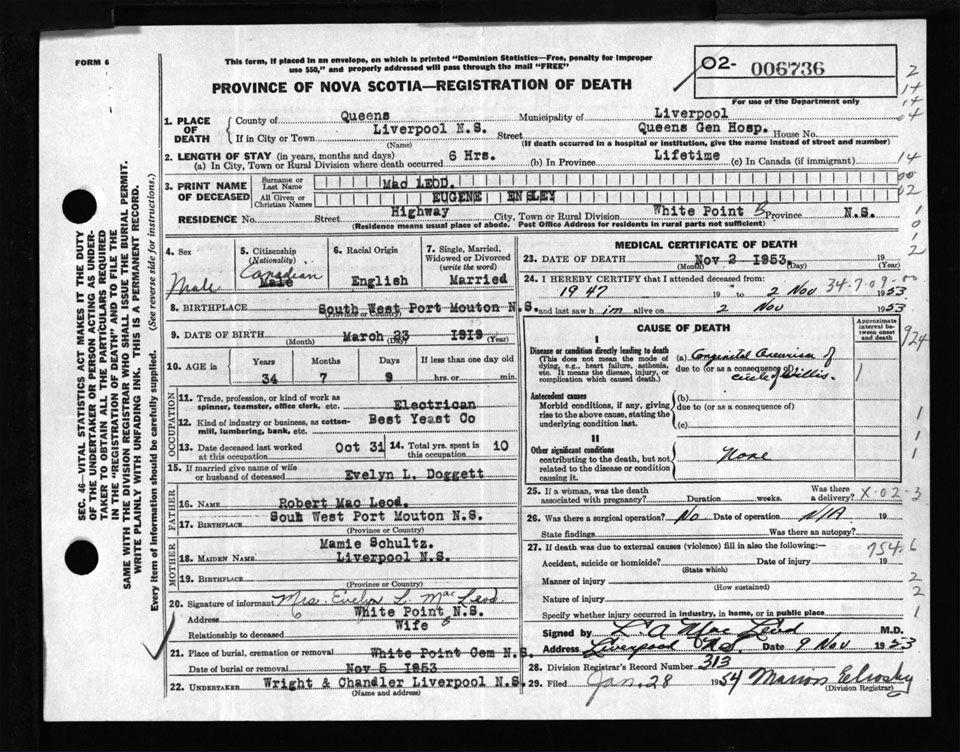 FORM 6
This form, if placed in an envelope, on which is printed "Dominion Statistics—Free, penalty for improper
use $50," and properly addressed will pass through the mail "FREE"
PROVINCE OF NOVA SCOTIA—REGISTRATION OF DEATH
02- 006736
For use of the Department only
SEC. 46—VITAL STATISTICS ACT MAKES IT THE DUTY
OF THE UNDERTAKER OR PERSON ACTING AS UNDER-
TAKER TO OBTAIN ALL THE PARTICULARS REQUIRED
IN THE "REGISTRATION OF DEATH" AND TO FILE THE
SAME WITH THE DIVISION REGISTRAR WHO SHALL ISSUE THE BURIAL PERMIT.
WRITE PLAINLY WITH UNFADING INK. THIS IS A PERMANENT RECORD.
Every item of information should be carefully supplied. (See reverse side for instructions.)
1. PLACE OF DEATH County of Queens Municipality of Liverpool
If in City or Town Liverpool N.S. Street Queens Gen Hosp. House No.
(Name) (If death occurred in a hospital or institution, give the name instead of street and number)
2. LENGTH OF STAY (in years, months and days)
(a) In City, Town or Rural Division where death occurred 6 Hrs. (b) In Province Lifetime (c) In Canada (if immigrant)
3. PRINT NAME OF DECEASED Surname or Last Name Mac LEOD.
All Given or Christian Names EUGENE ENSLEY
RESIDENCE No. Street Highway City, Town or Rural Division White Point B Province N.S.
(Residence means usual place of abode. Post Office Address for residents in rural parts not sufficient)
4. Sex Male
5. Citizenship (Nationality) Canadian Male
6. Racial Origin English
7. Single, Married, Widowed or Divorced (write the word) Married
8. BIRTHPLACE South West Port Mouton N.S.
(Province or Country)
9. DATE OF BIRTH March 23 1919
(Month) (Day) (Year)
10. AGE in Years Months Days If less than one day old
34 7 9 hrs. or min.
OCCUPATION
11. Trade, profession, or kind of work as spinner, teamster, office clerk, etc. Electrican
12. Kind of industry or business, as cotton-mill, lumbering, bank, etc. Best Yeast Co
13. Date deceased last worked at this occupation Oct 31 14. Total yrs. spent in this occupation 10
15. If married give name of wife or husband of deceased Evelyn L. Doggett
FATHER
16. NAME Robert Mac Leod.
17. BIRTHPLACE Souh West Port Mouton N.S.
(Province or Country)
MOTHER
18. MAIDEN NAME Mamie Schultz.
Liverpool N.S.
19. BIRTHPLACE
(Province or Country)
20. Signature of informant Mrs. Evelyn L. Mac Leod.
Address White Point N.S.
Relationship to deceased Wife
21. Place of burial, cremation or removal White Point Cem N.S.
Date of burial or removal Nov 5 1953
22. UNDERTAKER Wright & Chandler Liverpool N.S.
(Name and address)
MEDICAL CERTIFICATE OF DEATH
23. DATE OF DEATH Nov 2 1953.
(Month) (Day) (Year)
24. I HEREBY CERTIFY that I attended deceased from:
1947 19 to 2 Nov 1953
and last saw him alive on 2 Nov 1953
34-7-09-00
CAUSE OF DEATH
Approximate interval between onset and death
I
Disease or condition directly leading to death
(This does not mean the mode of dying, e.g., heart failure, asthenia, etc. It means the disease, injury, or complication which caused death.)
(a) Congenital Aneurism of
due to (or as a consequence of) circle of Willis.
Antecedent causes
Morbid conditions, if any, giving rise to the above cause, stating the underlying condition last.
(b)
due to (or as a consequence of)
(c)
II
Other significant conditions
contributing to the death, but not related to the disease or condition causing it.
None
25. If a woman, was the death associated with pregnancy? Duration weeks. Was there a delivery? X-02-3
26. Was there a surgical operation? No Date of operation N/A 19
State findings Was there an autopsy?
27. If death was due to external causes (violence) fill in also the following:— 754-6
Accident, suicide or homicide? Date of injury 19
(State which)
Manner of injury
(How sustained)
Nature of injury
Specify whether injury occurred in industry, in home, or in public place
Signed by L. A. Mac Leod M.D.
Address Liverpool N.S. Date 9 Nov 1953
28. Division Registrar's Record Number 313
29. Filed Jan. 28 1954 Marion
(Division Registrar)
2
14
14
04
14
00
02
1
01
2
924
1
1
1
2
2
1